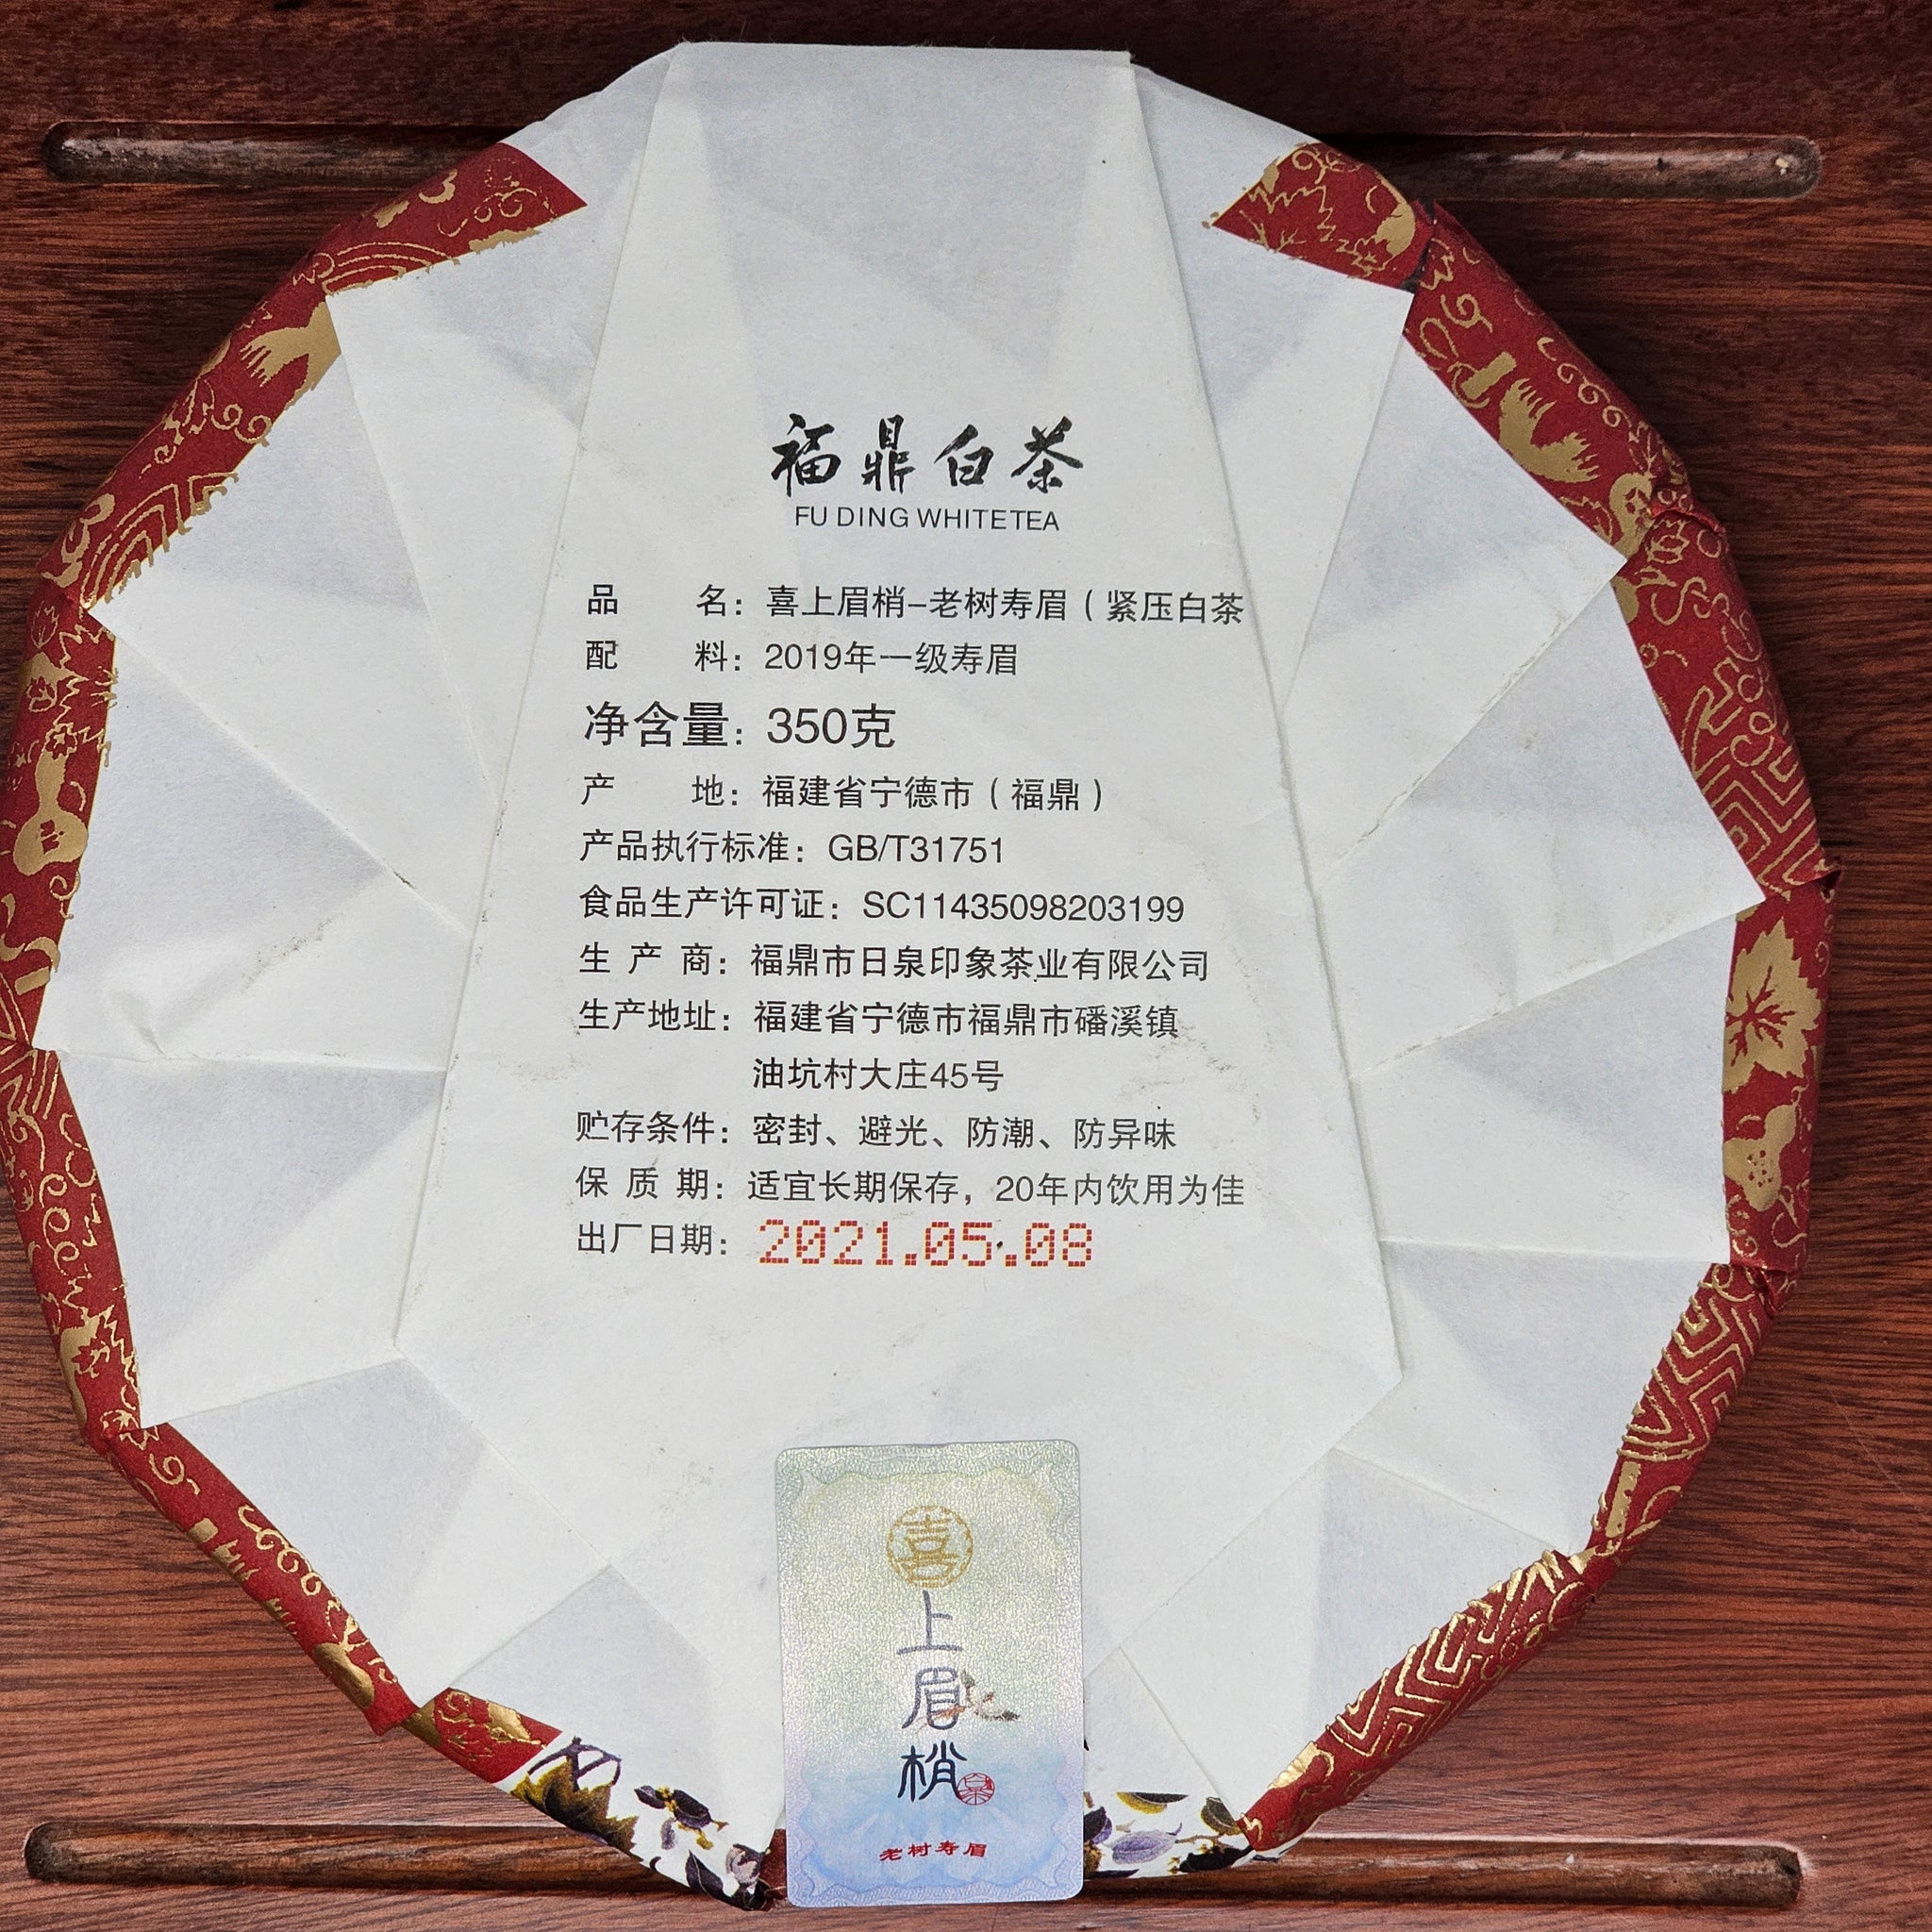 福鼎白茶
FU DING WHITE TEA
品 名：喜上眉梢-老树寿眉（紧压白茶
配 料：2019年一级寿眉
净含量：350克
产 地：福建省宁德市（福鼎）
产品执行标准：GB/T31751
食品生产许可证：SC11435098203199
生 产 商：福鼎市日泉印象茶业有限公司
生产地址：福建省宁德市福鼎市磻溪镇
油坑村大庄45号
贮存条件：密封、避光、防潮、防异味
保 质 期：适宜长期保存，20年内饮用为佳
出厂日期：2021.05.08
喜
上
眉
梢
老树寿眉